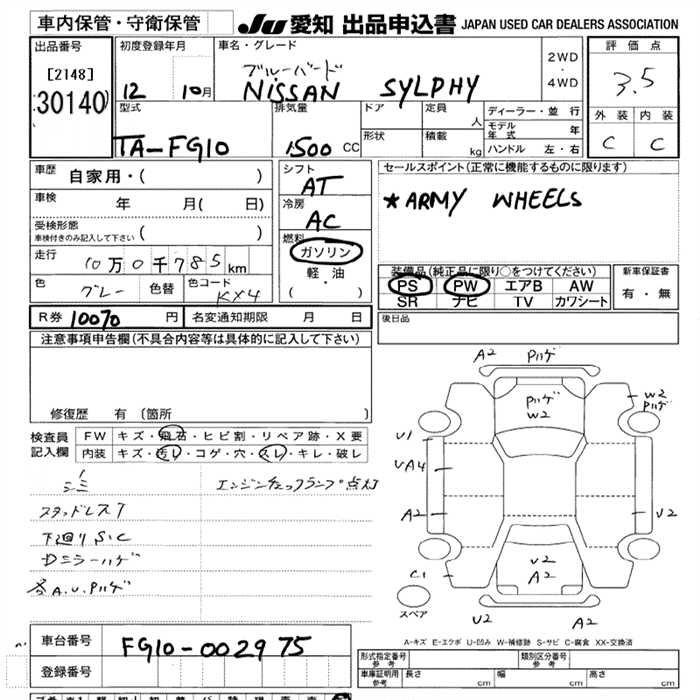 車内保管・守衛保管 JU 愛知 出品申込書 JAPAN USED CAR DEALERS ASSOCIATION
出品番号 初度登録年月 車名・グレード 2WD ・ 4WD 評価点
[2148] 30140 12 10月 ブルーバード NISSAN SYLPHY 3.5
型式 排気量 ドア 定員 人 ディーラー・並 行 外装 内装
TA-FG10 1500 CC 形状 積載 kg モデル年式 年 C C
ハンドル 左・右
車歴 自家用・( ) シフト AT セールスポイント(正常に機能するものに限ります)
車検 年 月( 日) 冷房 AC ★ARMY WHEELS
受検形態 車検付きのみ記入して下さい ( )
燃料 ガソリン 軽・油 ( ・ )
走行 10万0千785km 装備品(純正品に限り○をつけてください) 新車保証書
色 グレー 色替 色コード KX4 PS PW エアB AW 有・無
SR ナビ TV カワシート
R券 10070 円 名変通知期限 月 日 後日品
注意事項申告欄(不具合内容等は具体的に記入して下さい)
修復歴 有 (箇所 )
検査員記入欄 FW キズ・飛石・ヒビ割・リペア跡・X要
内装 キズ・汚レ・コゲ・穴・スレ・キレ・破レ
エンジンチェックランプ点灯
スタッドレス7
下廻りS.C
Dミラーハゲ
各A.U.Pハゲ
A2 Pハゲ
Pハゲ W2
W2 Pハゲ
U1
UA4
A2
U2
U2 A2
C1
スペア
U2 A2
A-キズ E-エクボ U-凹み W-補修跡 S-サビ C-腐食 XX-交換済
車台番号 FG10-002975
登録番号
形式指定番号 参考 類別区分番号 参考
車庫証明用 参考 長さ cm 幅 cm 高さ cm